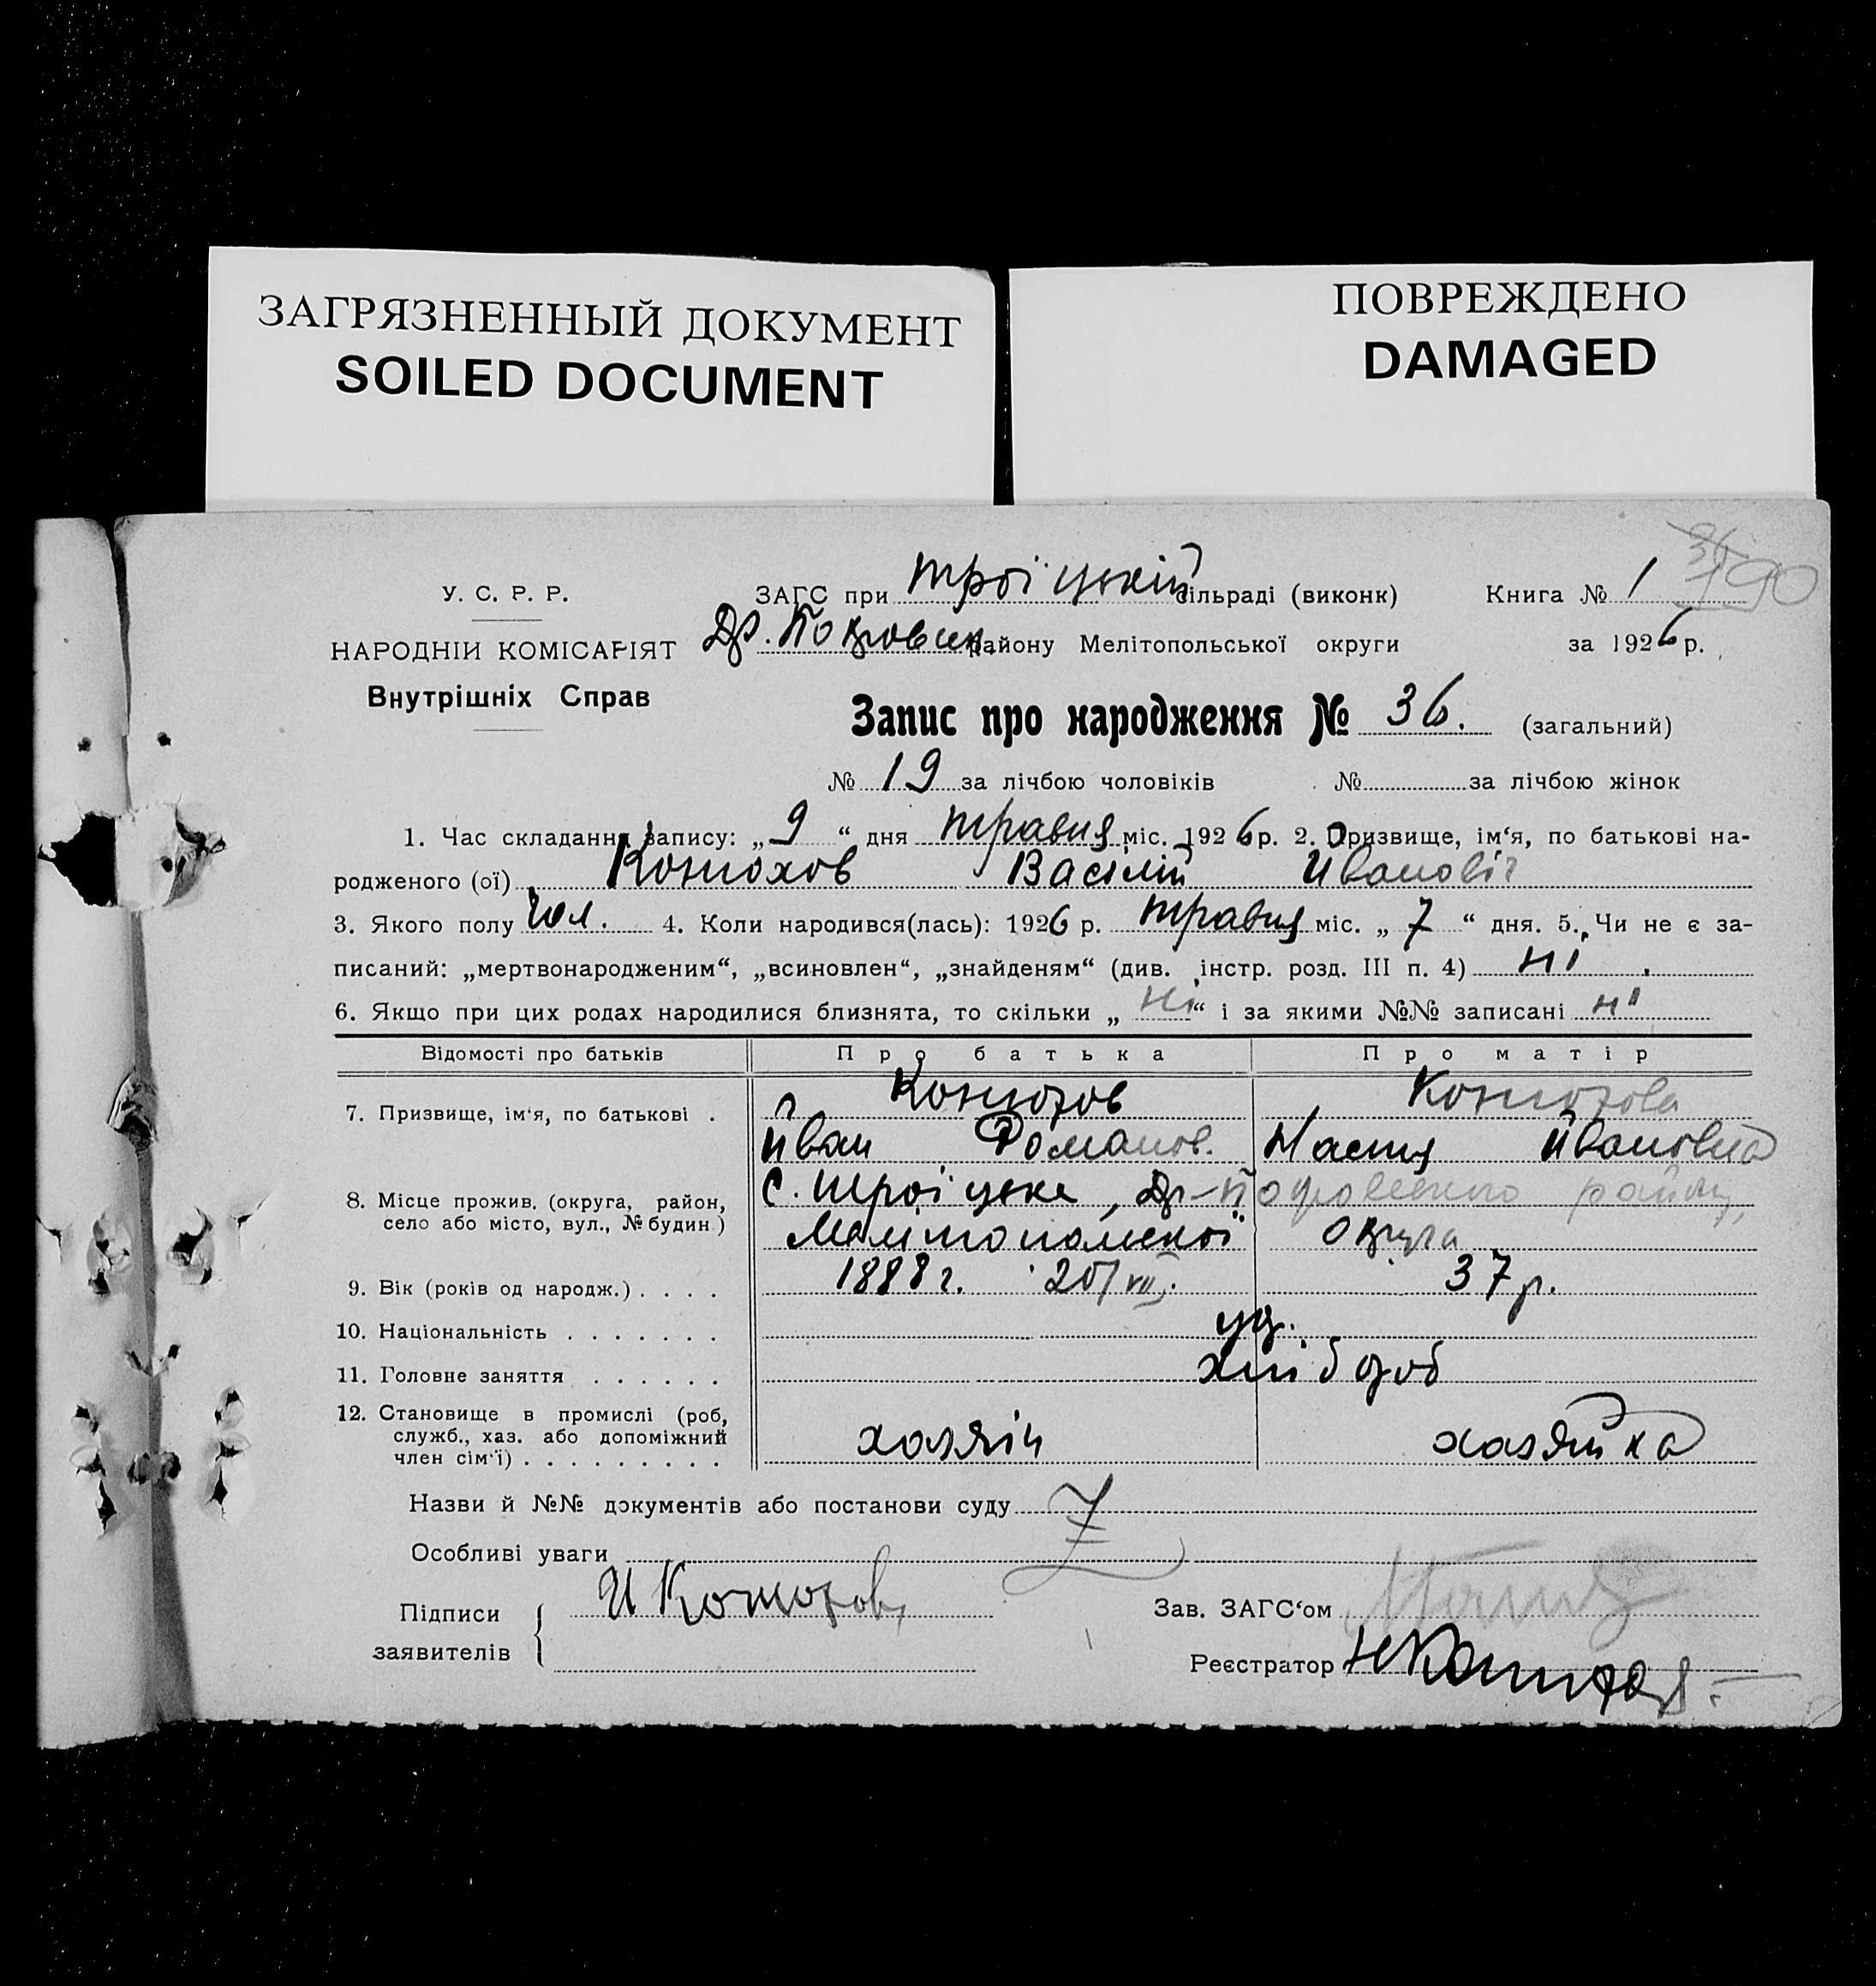 ЗАГРЯЗНЕННЫЙ ДОКУМЕНТ
SOILED DOCUMENT
ПОВРЕЖДЕНО
DAMAGED
У. С. Р. Р.
НАРОДНІЙ КОМІСАРІЯТ
Внутрішніх Справ
ЗАГС при Троїцькій сільраді (виконк) Книга № 1 90
Др. Покровськ. району Мелітопольської округи за 1926 р.
Запис про народження № 36. (загальний)
№ 19 за лічбою чоловіків № за лічбою жінок
1. Час складання запису: „9“ дня травня міс. 1926 р. 2. Призвище, ім‘я, по батькові на-
родженого (ої) Конюхов Васілій Івановіч
3. Якого полу чол. 4. Коли народився(лась): 1926 р. травня міс. „7“ дня. 5. Чи не є за-
писаний: „мертвонародженим“, „всиновлен“, „знайденям“ (див. інстр. розд. III п. 4) ні.
6. Якщо при цих родах народилися близнята, то скільки „ні“ і за якими №№ записані ні
Відомості про батьків Про батька Про матір
7. Призвище, ім‘я, по батькові . Конюхов Конюхова
Иван Романов. Настя Ивановна
8. Місце прожив. (округа, район, село або місто, вул., № будин) с. Троїцьке, Др-Покровського району,
Мелітопольскої округа
9. Вік (років од народж.) . . . . 1888 г. 20/VII. 37 р.
10. Національність . . . . . . . ук.
11. Головне заняття . . . . . . хлібороб
12. Становище в промислі (роб, служб., хаз. або допоміжний член сім‘ї) . . . . . . . . . хазяін хазяйка
Назви й №№ документів або постанови суду
Особливі уваги
Підписи заявителів И Конюхов
Зав. ЗАГС‘ом
Реєстратор